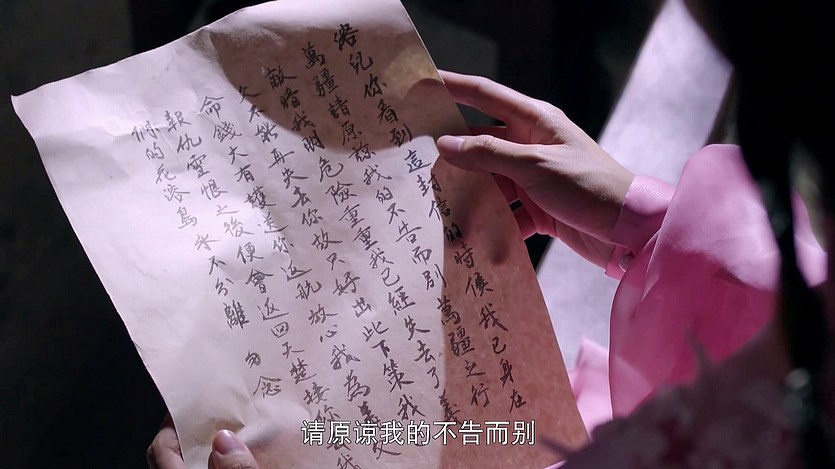 溶兒你看到這封信的時候我已身在
萬疆請原諒我的不告而別萬疆之行
敵暗我明危險重重我已經失去了義
父不能再失去你故只好出此下策我
命錢大有護送你返航放心我為義父
報仇雪恨之後便會返回天楚接你我
們的花溶島永不分離 勿念
请原谅我的不告而别